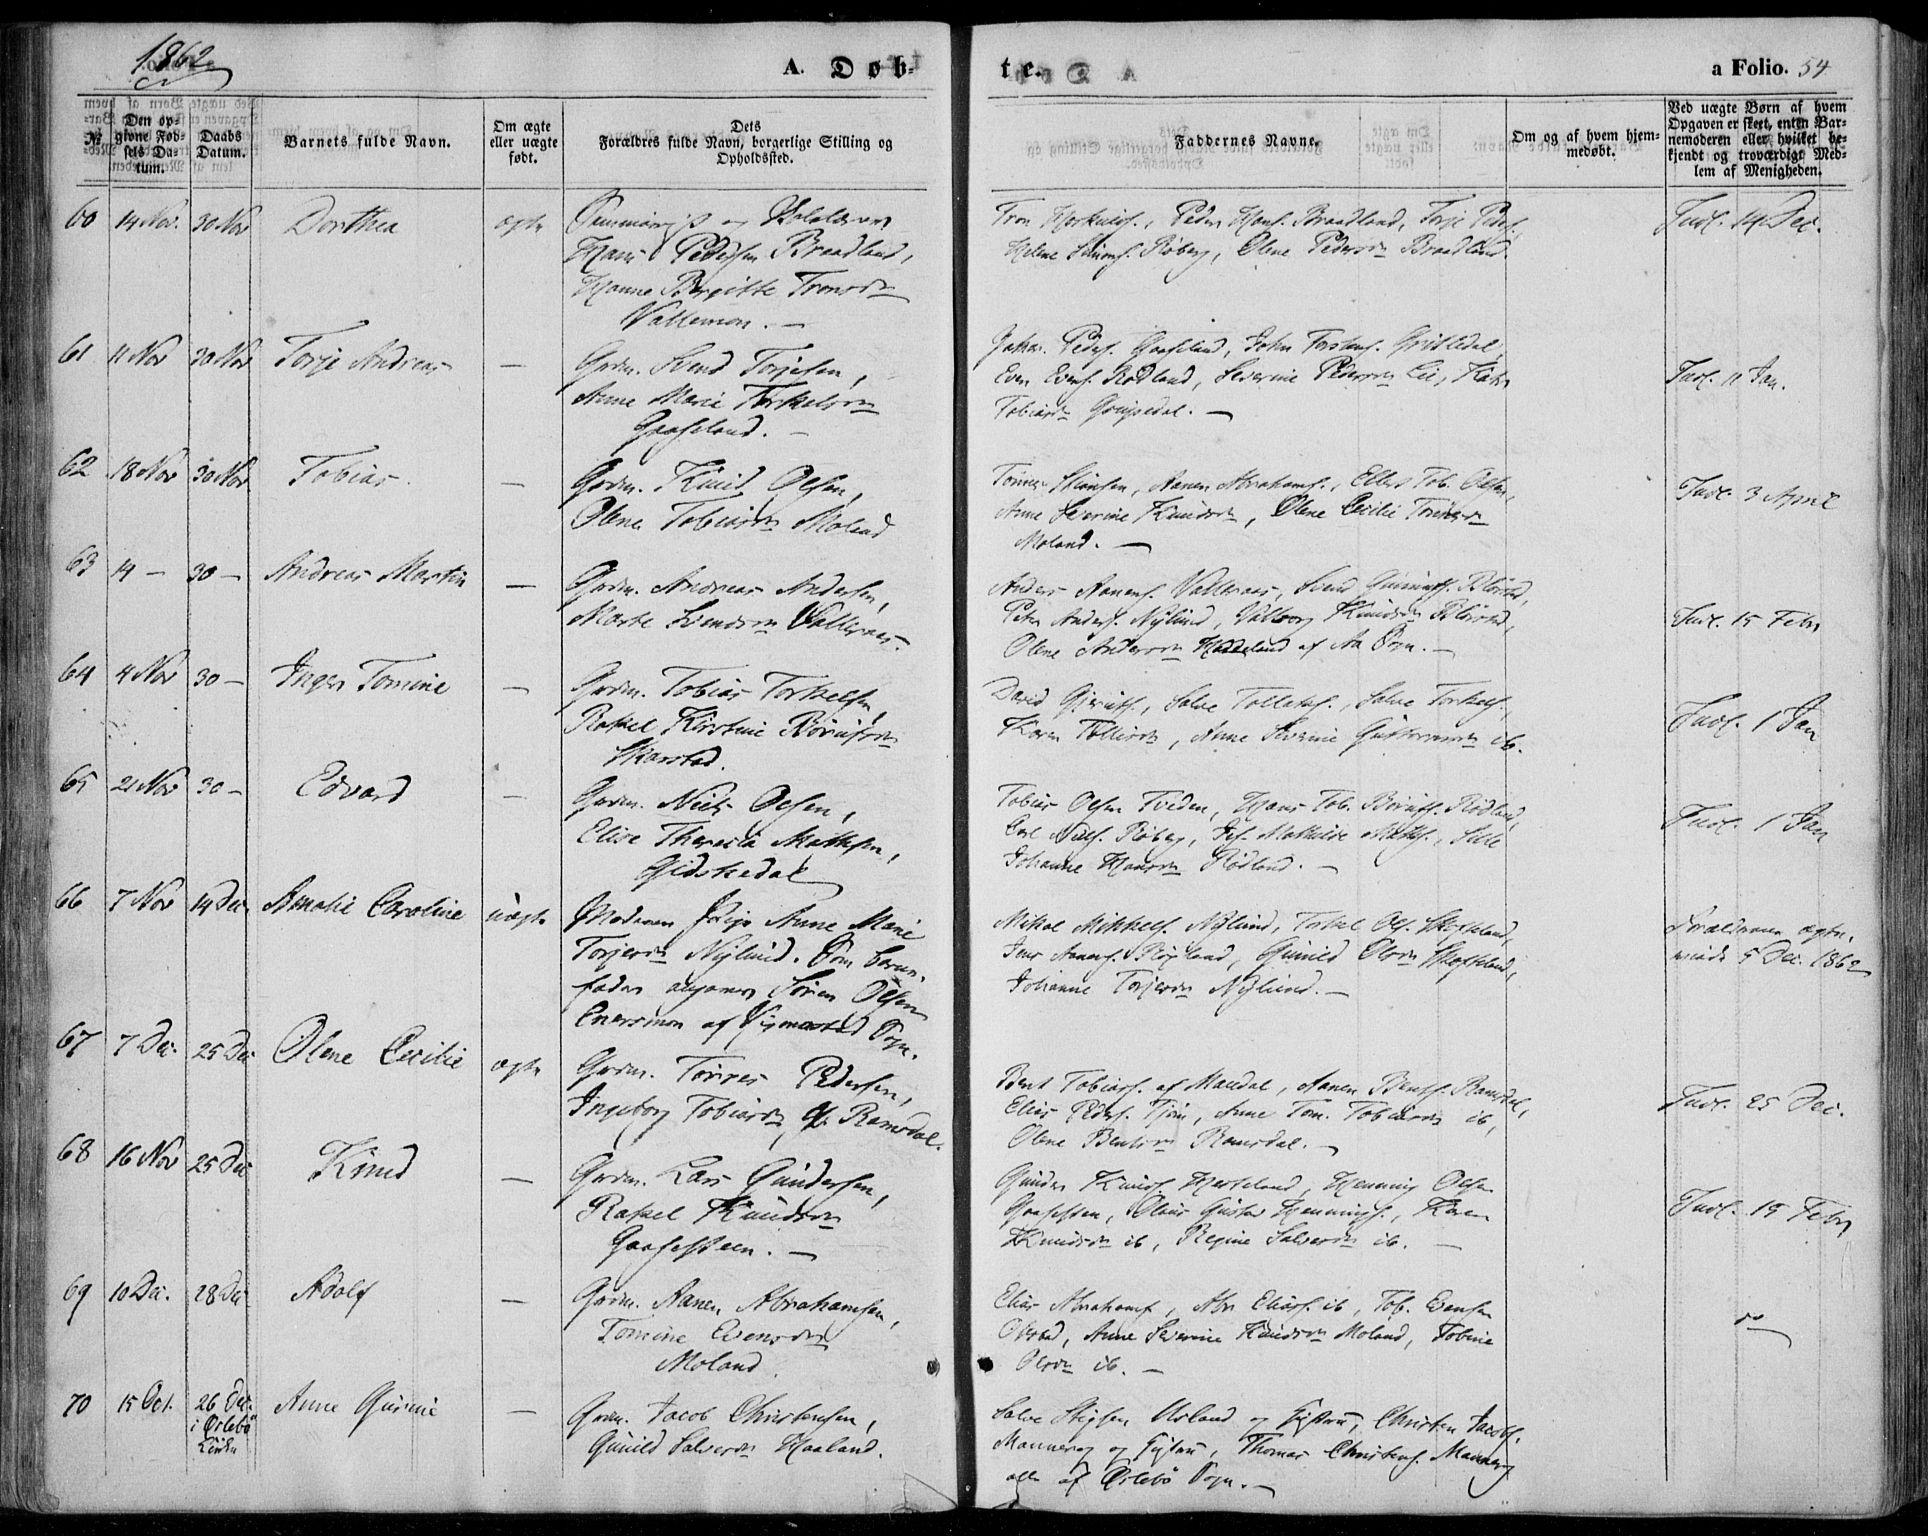 1862
A. Døb-
te.
a Folio. 54
№
Den op-
givne Fød-
sels Da-
tum.
Daabs
Datum.
Barnets fulde Navn.
Om ægte
eller uægte
født.
Dets
Forældres fulde Navn, borgerlige Stilling og
Opholdssted.
Faddernes Navne.
Om og af hvem hjem-
medøbt.
Ved uægte Børn af hvem
Opgaven er skeet, enten Bar-
nemoderen eller hvilket be-
kjendt og troværdigt Med-
lem af Menigheden.
60 14 Nov. 30 Nov Dorthea ægte
Seminarist og Skolelærer
Hans Pedersen Braadland,
Hanne Birgitte Tronsdr
Vallemon.
Tron Herkuls., Peder Hans. Braadland, Torje Peders.,
Helene Simons. Røberg, Olene Pedersdr Braadland.
Indl. 14 Dec.
61 11 Nov 30 Nov Torje Andreas —
Grdm. Svend Torjesen,
Anne Marie Torkelsdr
Gaaseland.
Peders. Gaaseland, John Torstens. Gridledal,
Even Evens. Rødland, Severine Pedersdr Lie,
Tobiasdr
Indl. 11 Jan.
62 18 Nov 30 Nov Tobias. —
Grdm. Knud Olsen,
Olene Tobiasdr Moland
Tønnes Stiansen, Aanen Abrahams., Ellert Tob. Olsen,
Anne Severine Knudsdr, Olene Cecilie Tønnesdr
Moland. —
Indl. 3 April
63 14 — 30 — Andreas Martin —
Grdm. Andreas Andersen,
Marte Svendsdr Valleraas.
Anders Aanens. Valleraas, Svend Gunnufs.
Peter Anders. Nylund, Valborg Knudsdr
Olene Andersdr Haddeland af Aa Sogn. —
Indl. 15 Febr
64 4 Nov 30 — Inger Tomine —
Grdm. Tobias Torkelsen,
Rakel Kirstine Børufsdr
Skarstad.
David Gjeruls., Salve Tollefs., Salve Torkels.,
Karen Tollisdr, Anne Severine Guttormsdr ib.
Indl. 1 Jan
65 21 Nov 30 — Edvard —
Grdm. Niels Olsen,
Elise Theresia Mathsen,
Gidskedal
Tobias Olsen Tveden, Hans Tob. Børufs. Rødland,
Carl Niels. Røberg, Jfr. Mathilde Maths.,
Johanne Hansdr Rødland. —
Indl. 1 Jan
66 7 Nov 14 Dec. Amalie Caroline uægte
Moderen Pige Anne Marie
Torjesdr Nylund. Som barne-
fader angives Søren Olsen
Enersmon af Vigmostad Sogn.
Mikal Mikkels. Nylund, Torkel Ols. Skofteland,
Jens Aanens. Høyland, Gunild Olsdr Skofteland,
Johanne Torjesdr Nylund. —
Forældrene ægte-
viede 5 Dec. 1862
67 7 Dec. 25 Dec Olene Cecilie ægte
Grdm. Tønnes Pedersen,
Ingeborg Tobiasdr, Ramsdal.
Bent Tobias. af Mandal, Aanen Bents. Ramsdal,
Elias Peders. Tjom, Anne Tom. Tobiasdr ib,
Olene Bentsdr Ramsdal. —
Indl. 25 Dec.
68 16 Nov 25 Dec Knud —
Grdm. Lars Gundersen,
Rakel Knudsdr
Gaasesteen. —
Gunder Knuds. Hesteland, Henning Olsen
Gaasesteen, Olaus Gustav Hennings., Karen
Knudsdr ib, Regine Salvesdr ib. —
Indl. 15 Febr
69 10 Dec. 28 Dec Adolf —
Grdm. Aanen Abrahamsen,
Tomine Evensdr
Moland.
Elias Abrahams., Abr Elias. ib, Tob. Evensen
Ofstad, Anne Severine Knudsdr Moland, Tobine
Olsdr ib. —
do
70 15 Oct. 26 Dec. i Øslebø Kirke Anne Gurine —
Grdm. Jacob Christensen,
Gunild Salvesdr Haaland.
Salve Stigsen Usland og Hustru, Christen Jacobs.
Mannevog og Hustru, Thomas Christens. Mannevog
alle af Øslebø Sogn. —